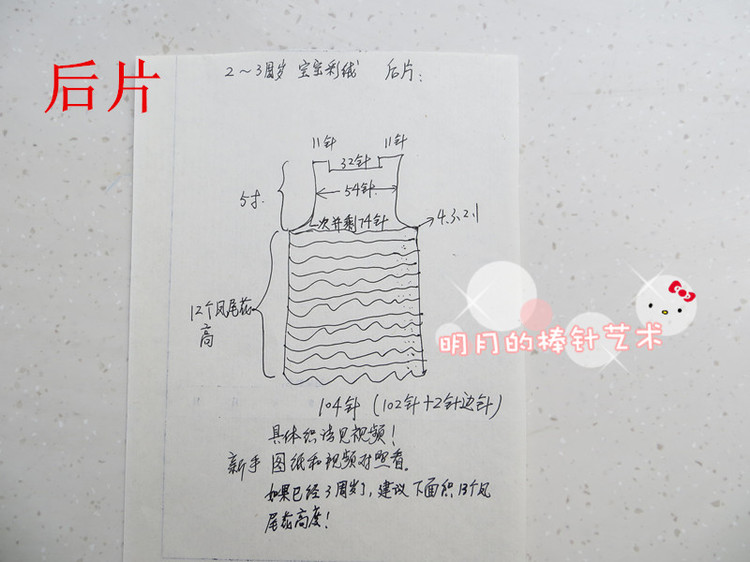 后片
2～3周岁 宝宝彩绒 后片：
11针 11针
32针
54针
5寸
一次并剩74针
4.3.2.1
12个凤尾花
高
明月的棒针艺术
104针（102针+2针边针）
具体织法见视频！
新手 图纸和视频对照看。
如果已经3周岁了，建议下面织13个凤
尾花高度！